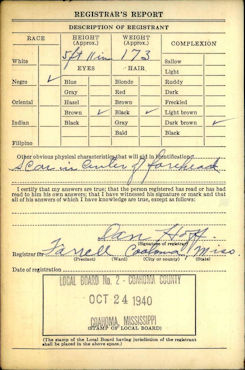 REGISTRAR'S REPORT
DESCRIPTION OF REGISTRANT
RACE HEIGHT (Approx.) WEIGHT (Approx.) COMPLEXION
5 ft 11 in 173
White Sallow
EYES HAIR Light
Negro ✓ Blue Blonde Ruddy
Gray Red Dark
Oriental Hazel Brown Freckled
Brown ✓ Black ✓ Light brown
Indian Black Gray Dark brown ✓
Bald Black
Filipino
Other obvious physical characteristics that will aid in identification
Scar in center of forehead
I certify that my answers are true; that the person registered has read or has had
read to him his own answers; that I have witnessed his signature or mark and that
all of his answers of which I have knowledge are true, except as follows:
Dan Hoff
(Signature of registrar)
Registrar for Farrell Coahoma Miss
(Precinct) (Ward) (City or county) (State)
Date of registration
LOCAL BOARD No. 2 - COAHOMA COUNTY
OCT 24 1940
COAHOMA, MISSISSIPPI
(STAMP OF LOCAL BOARD)
(The stamp of the Local Board having jurisdiction of the registrant
shall be placed in the above space.)